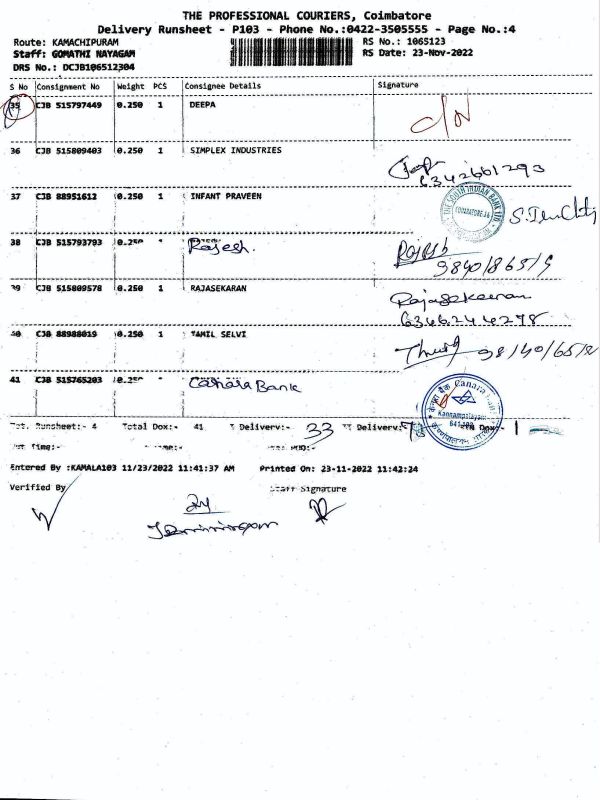 THE PROFESSIONAL COURIERS, Coimbatore
Delivery Runsheet - P103 - Phone No.:0422-3505555 - Page No.:4
Route: KAMACHIPURAM RS No.: 1065123
Staff: GOMATHI NAYAGAM RS Date: 23-Nov-2022
DRS No.: DCJB106512304
S No Consignment No Weight PCS Consignee Details Signature
35 CJB 515797449 0.250 1 DEEPA
36 CJB 515809403 0.250 1 SIMPLEX INDUSTRIES
6342601293
37 CJB 88951612 0.250 1 INFANT PRAVEEN
THE SOUTH INDIAN BANK LTD
38 CJB 515793793 Rajesh. Rajesh
39 CJB 515809578 0.250 1 RAJASEKARAN Rajasekaran
40 CJB 88988019 0.250 1 TAMIL SELVI
41 CJB 515765203 Canara Bank
Canara Bank
Kannampalayam
Tot. Runsheet:- 4 Total Dox:- 41 Delivery:- 33 Delivery:-
Entered By :KAMALA103 11/23/2022 11:41:37 AM Printed On: 23-11-2022 11:42:24
Verified By Staff Signature